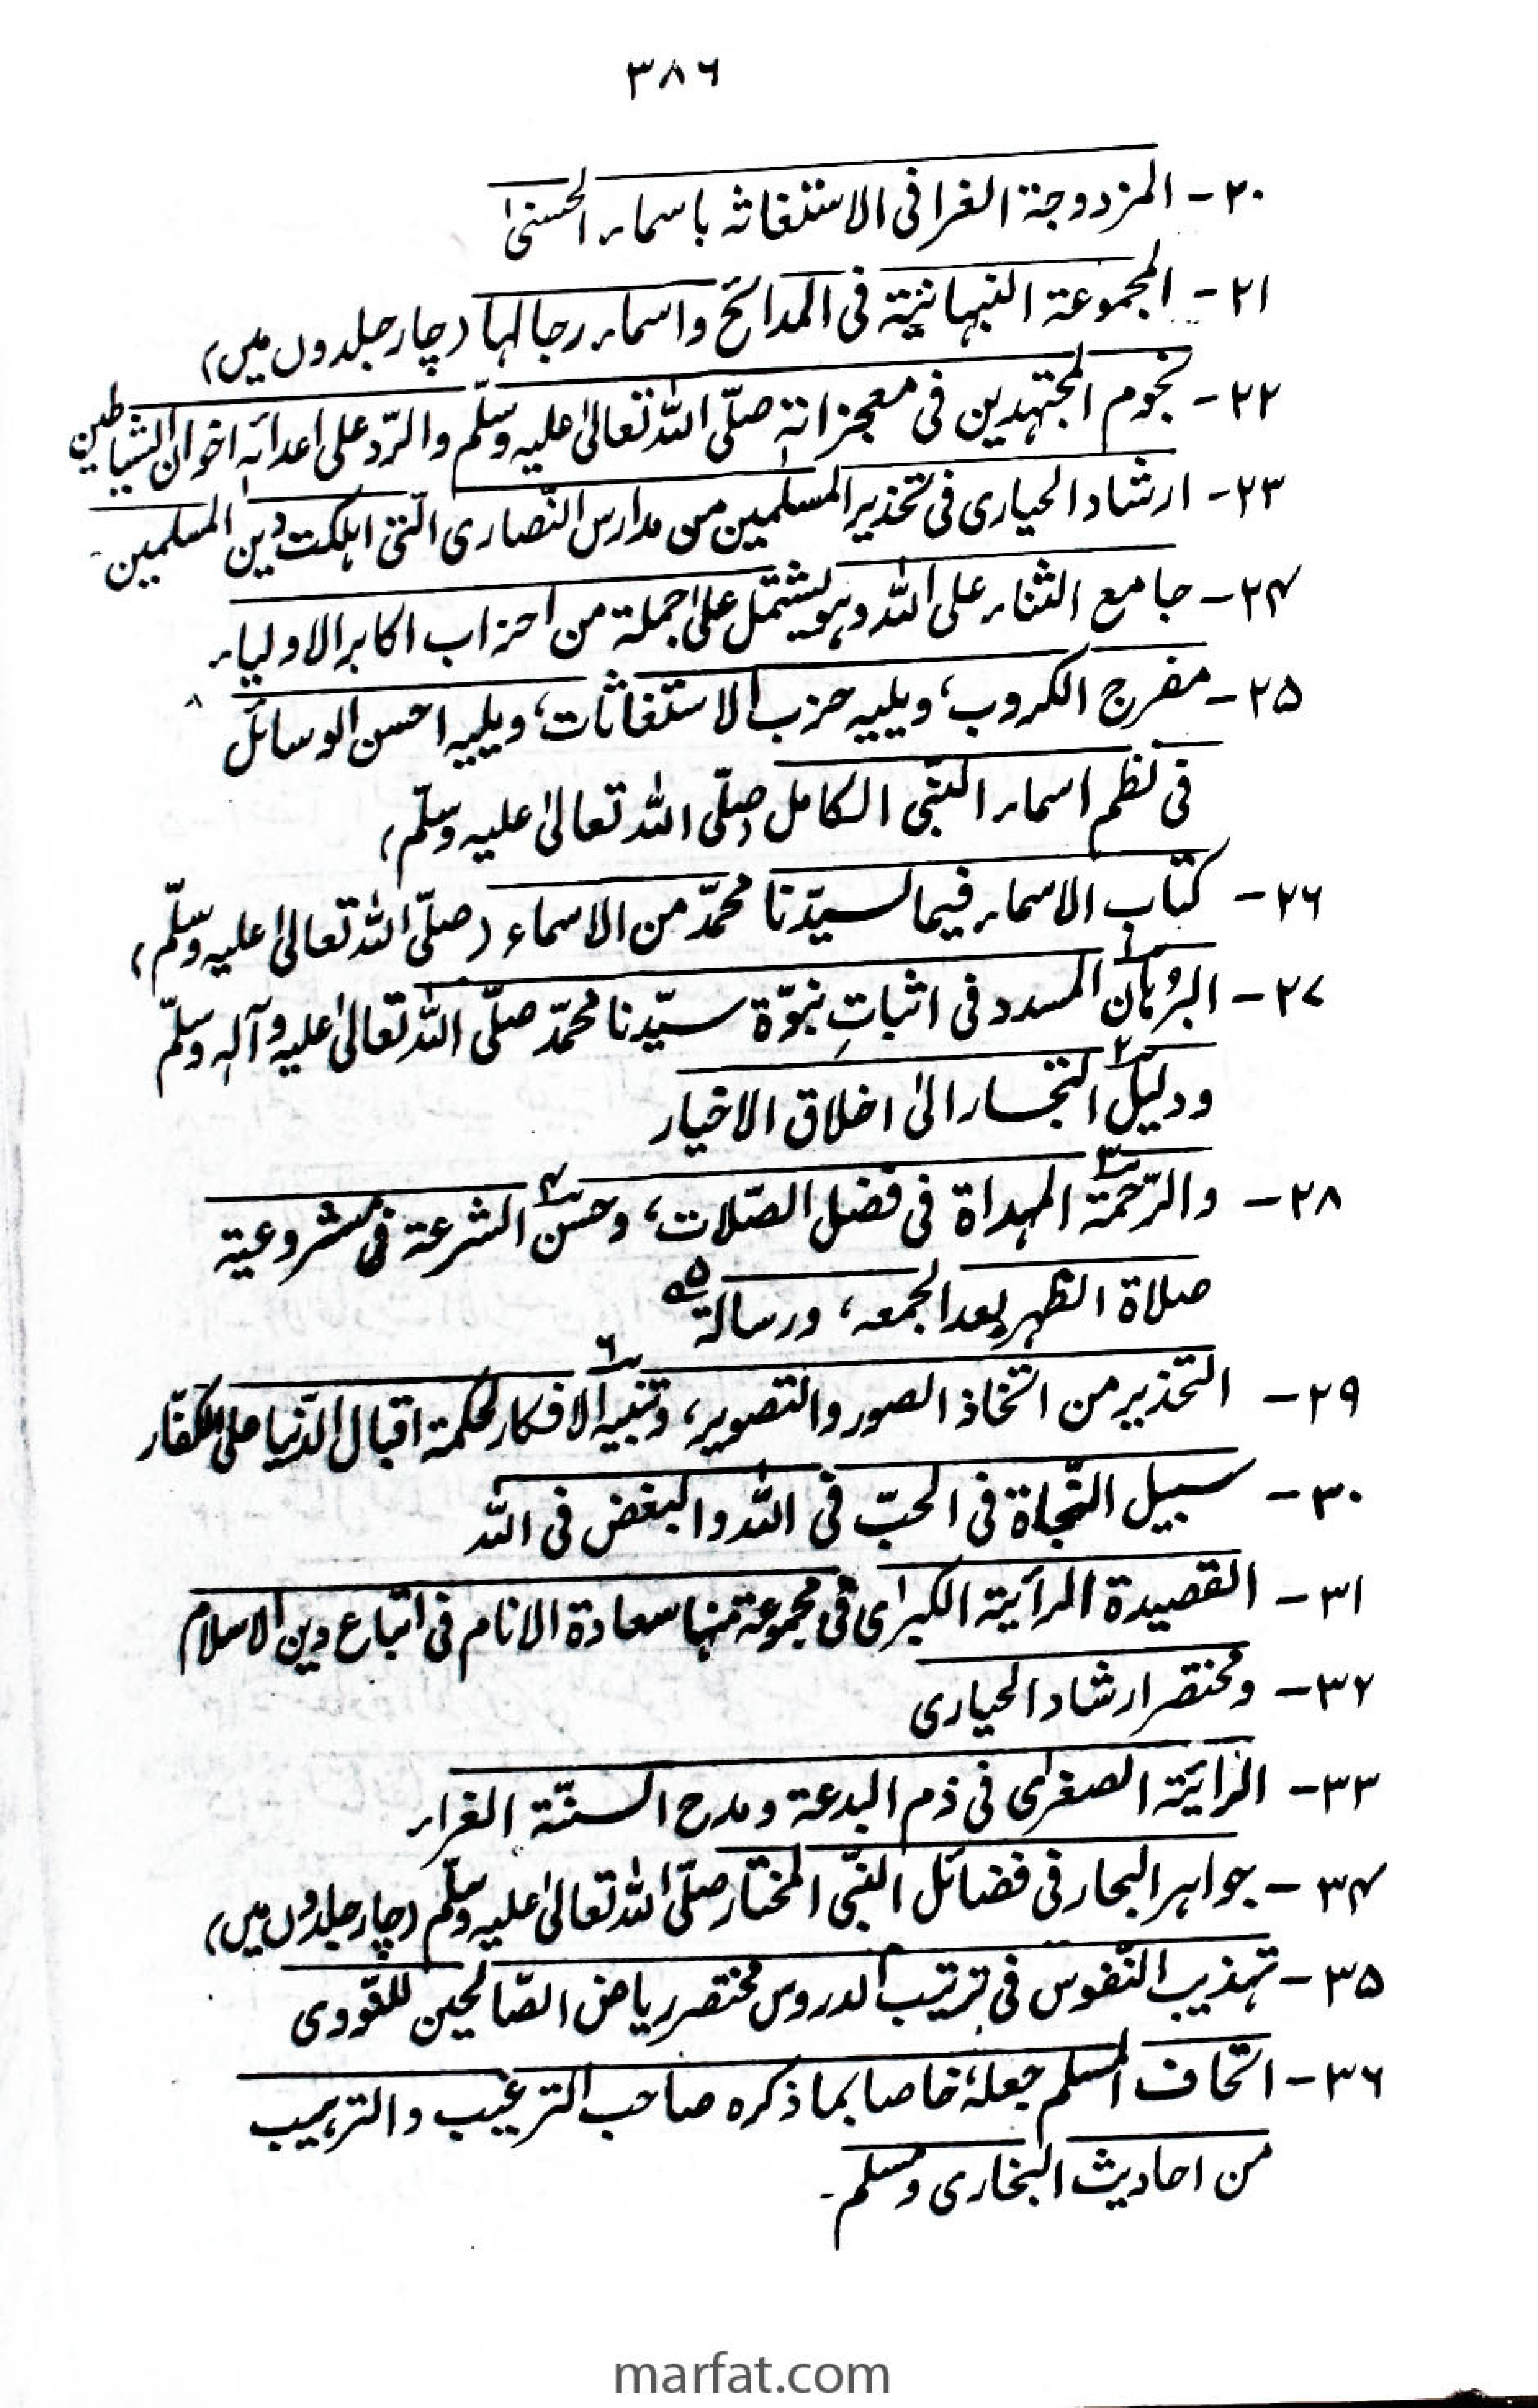 ۳۸۶
۲۰- المزدوجۃ الغرا فی الاستغاثہ باسماء الحسنیٰ
۲۱- المجموعۃ النبہانیّۃ فی المدائح واسماء رجالہا (چار جلدوں میں)
۲۲- نجوم المجتہدین فی معجزاتہٖ صلّی اللہ تعالیٰ علیہ وسلّم والرّد علی اعدائہٖ اخوان الشیاطین
۲۳- ارشاد الحیاری فی تحذیر المسلمین من مدارس النّصاری الّتی اہلکت دین المسلمین۔
۲۴- جامع الثناء علی اللہ وہو یشتمل علیٰ جملۃ من احزاب اکابر الاولیاء
۲۵- مفرج الکروب، ویلیہ حزب الاستغاثات، ویلیہ احسن الوسائل
فی نظم اسماء النّبی الکامل (صلّی اللہ تعالیٰ علیہ وسلّم)
۲۶- کتاب الاسماء فیما لسیّدنا محمّد من الاسماء (صلّی اللہ تعالیٰ علیہ وسلّم)
۲۷- البرُہان۱ المسدد فی اثباتِ نبوّۃ سیّدنا محمّد صلّی اللہ تعالیٰ علیہ وآلہٖ وسلّم
ودلیل۲ التجار الیٰ اخلاق الاخیار
۲۸- والرّحمۃ۳ المہداۃ فی فضل الصّلات، وحسن۴ الشرعۃ فی مشروعیۃ
صلاۃ الظہر بعد الجمعہ، ورسالۃ۵
۲۹- التحذیر من اتخاذ الصور والتصویر، وتنبیہ۶ الافکار لحکمۃ اقبال الدّنیا علی الکفّار
۳۰- سبیل النّجاۃ فی الحبّ فی اللہ والبغض فی اللہ
۳۱- القصیدۃ الرأیّۃ الکبرٰی فی مجموعۃ منہا سعادۃ الانام فی اتباع دین الاسلام
۳۲- ومختصر ارشاد الحیاری
۳۳- الرائیّۃ الصغرٰی فی ذم البدعۃ ومدح السنّۃ الغراء
۳۴- جواہر البحار فی فضائل النّبی المختار صلّی اللہ تعالیٰ علیہ وسلّم (چار جلدوں میں)
۳۵- تہذیب النّفوس فی ترتیب الدروس مختصر ریاض الصّالحین للنّووی
۳۶- اتحاف المسلم جعلہٗ خاصا بما ذکرہ صاحب الترغیب والترہیب
من احادیث البخاری ومسلم۔
marfat.com